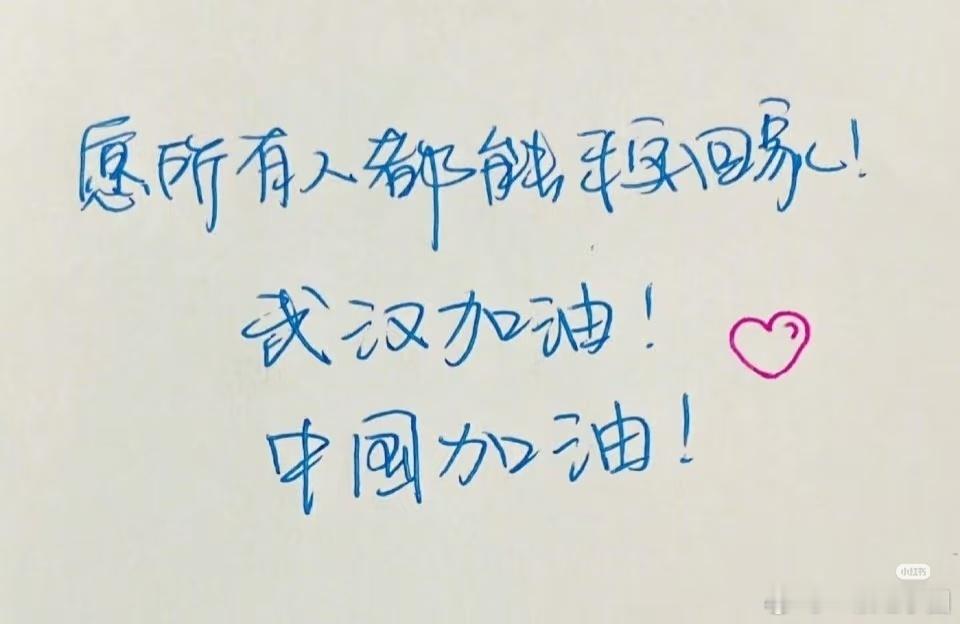 愿所有人都能平安回家!
武汉加油!
中國加油!
小红书